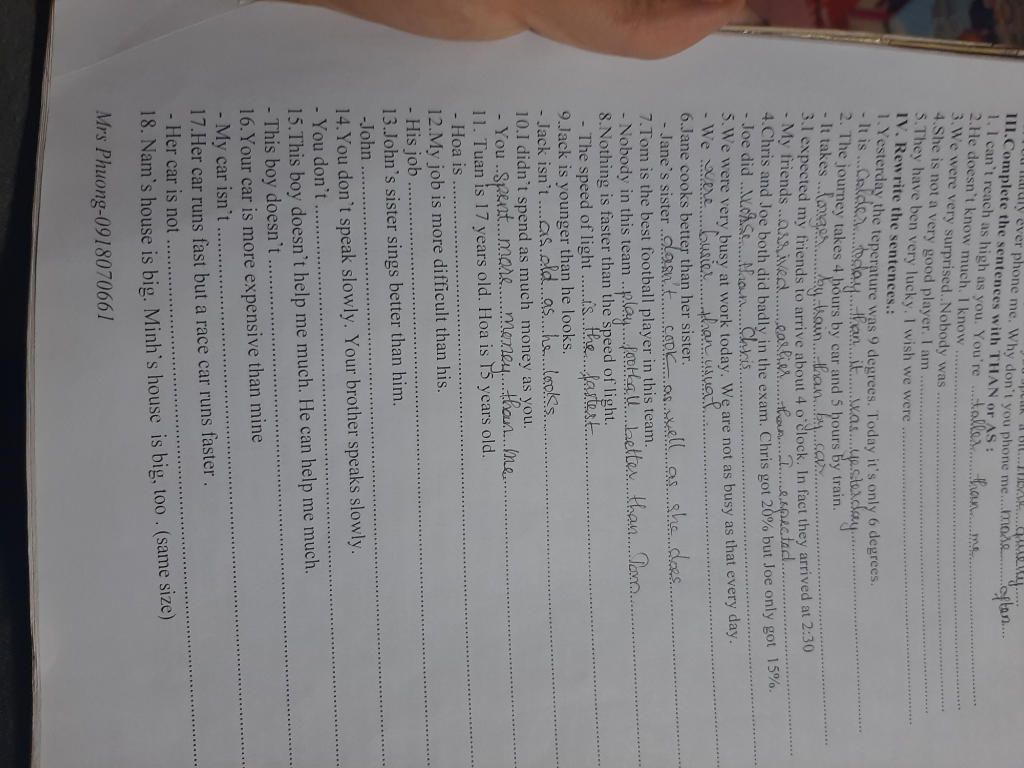 ever phone me. Why don't you phone me more often...
III.Complete the sentences with THAN or AS :
1. I can't reach as high as you. You're ..taller than me......
2.He doesn't know much. I know ..............................
3.We were very surprised .Nobody was ..............................
4.She is not a very good player. I am ..............................
5.They have ben very lucky. I wish we were ..............................
IV. Rewrite the sentences.:
1.Yesterday the teperature was 9 degrees. Today it's only 6 degrees.
- It is ...colder today than it was yesterday..........
2. The journey takes 4 hours by car and 5 hours by train.
- It takes ...longer by train than by car
3.I expected my friends to arrive about 4 o'clock. In fact they arrived at 2:30
- My friends ..arrived earlier than I expected..........
4.Chris and Joe both did badly in the exam. Chris got 20% but Joe only got 15%.
- Joe did ...worse than Chris..........
5.We were very busy at work today. We are not as busy as that every day.
- We were busier than usual..........
6.Jane cooks better than her sister.
- Jane's sister ..doesn't cook as well as she does..........
7.Tom is the best football player in this team.
- Nobody in this team ..play football better than Tom..........
8.Nothing is faster than the speed of light.
- The speed of light .....is the fastest..........
9.Jack is younger than he looks.
- Jack isn't ...as old as he looks..........
10.I didn't spend as much money as you.
- You ..spent more money than me..........
11. Tuan is 17 years old. Hoa is 15 years old.
- Hoa is ..............................
12.My job is more difficult than his.
- His job ..............................
13.John's sister sings better than him.
-John..............................
14.You don't speak slowly. Your brother speaks slowly.
- You don't ..............................
15.This boy doesn't help me much. He can help me much.
- This boy doesn't ..............................
16.Your car is more expensive than mine
- My car isn't ..............................
17.Her car runs fast but a race car runs faster .
- Her car is not ..............................
18. Nam's house is big. Minh's house is big, too . (same size)
Mrs Phuong-0918070661